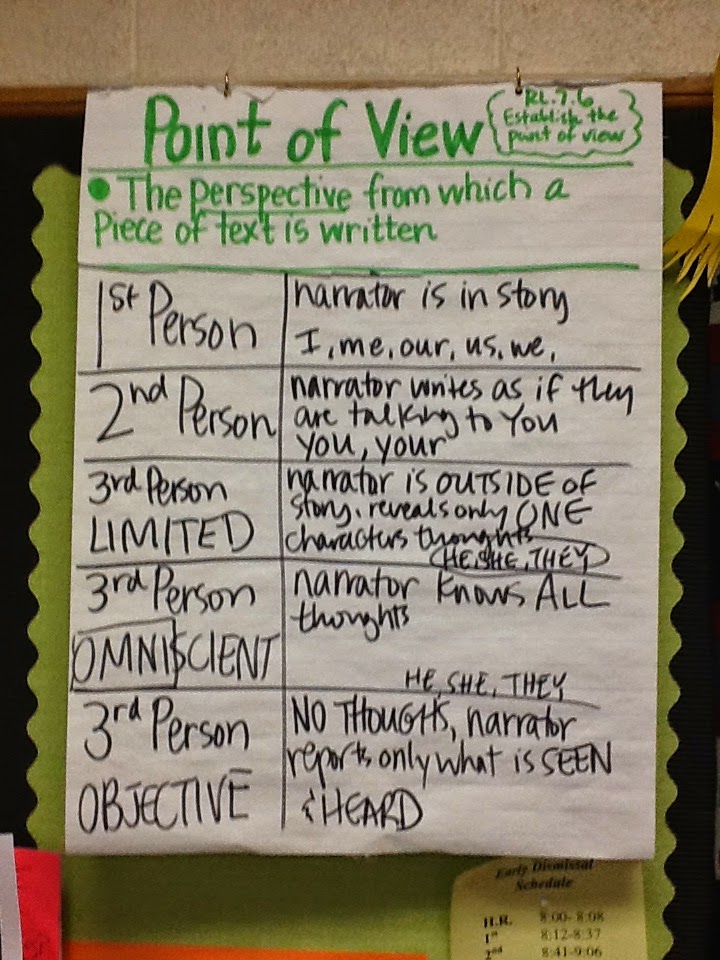 Point of View
RL.7.6
Establish the
point of view
• The perspective from which a
Piece of text is written
1st Person
narrator is in story
I, me, our, us, we,
2nd Person
narrator writes as if they
are talking to You
You, your
3rd Person
LIMITED
narrator is OUTSIDE OF
story. reveals only ONE
characters thoughts
HE, SHE, THEY
3rd Person
OMNISCIENT
narrator knows ALL
thoughts
HE, SHE, THEY
3rd Person
OBJECTIVE
NO THOUGHTS, narrator
reports only what is SEEN
& HEARD
Early Dismissal
Schedule
H.R. 8:00-8:08
1st 8:12-8:37
2nd 8:41-9:06